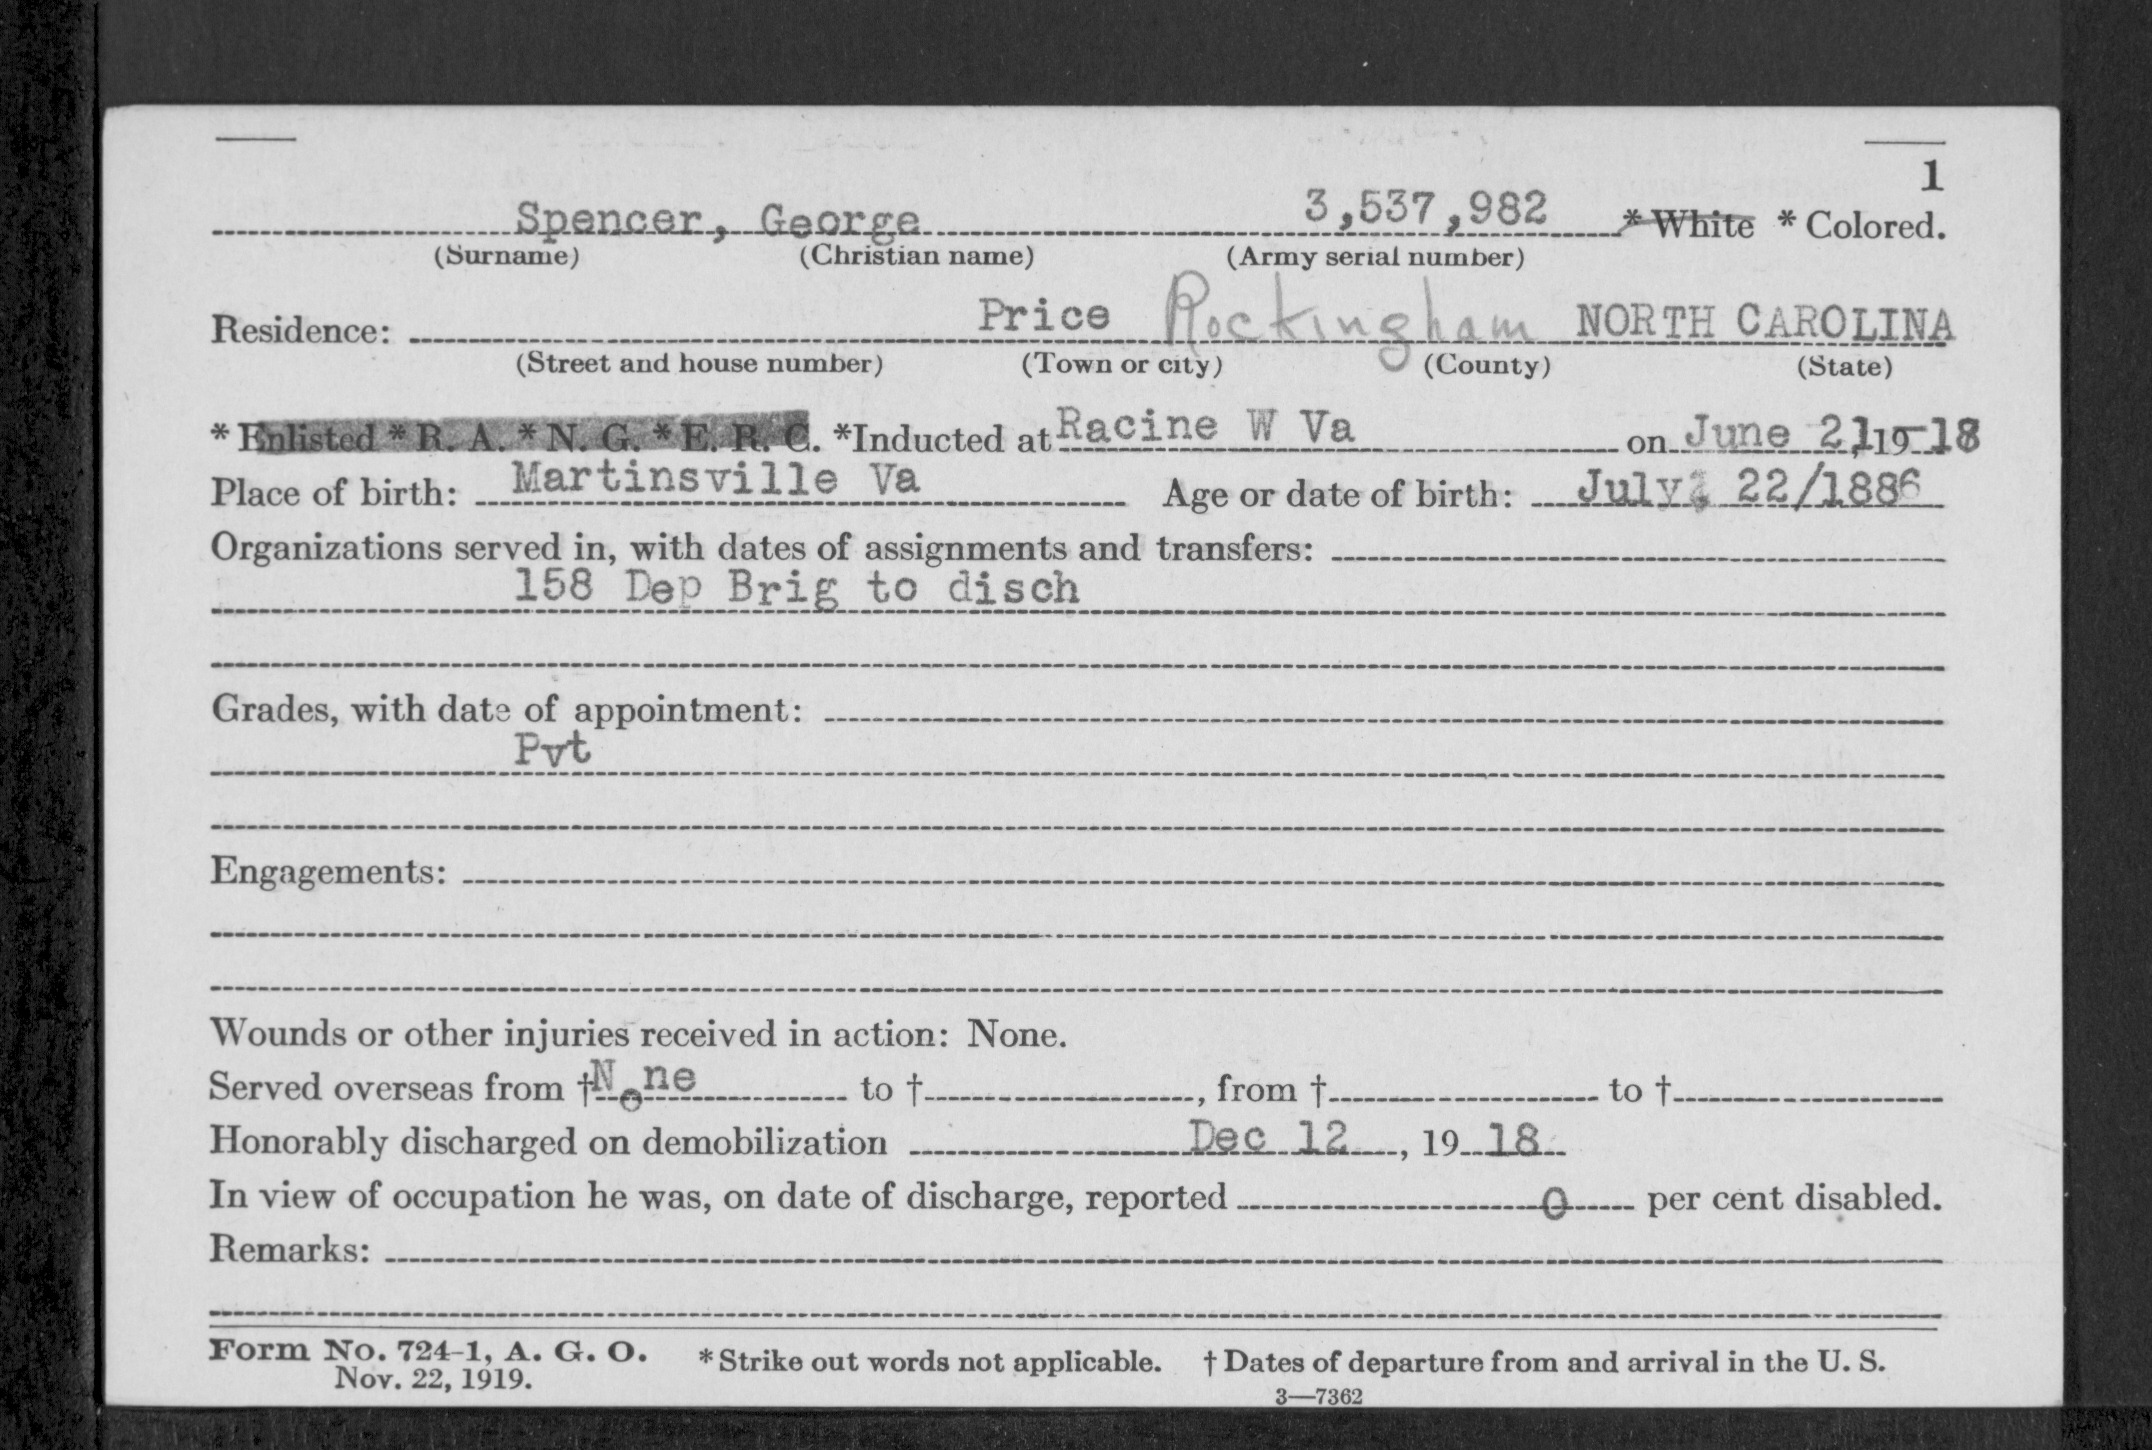 1
Spencer, George 3,537,982 * White * Colored.
(Surname) (Christian name) (Army serial number)
Residence: Price Rockingham NORTH CAROLINA
(Street and house number) (Town or city) (County) (State)
* Enlisted * R. A. * N. G. * E. R. C. *Inducted at Racine W Va on June 21, 19 18
Place of birth: Martinsville Va Age or date of birth: July 22/1886
Organizations served in, with dates of assignments and transfers:
158 Dep Brig to disch
Grades, with date of appointment:
Pvt
Engagements:
Wounds or other injuries received in action: None.
Served overseas from † None to †, from † to †
Honorably discharged on demobilization Dec 12, 19 18
In view of occupation he was, on date of discharge, reported 0 per cent disabled.
Remarks:
Form No. 724-1, A. G. O. * Strike out words not applicable. † Dates of departure from and arrival in the U. S.
Nov. 22, 1919.
3—7362